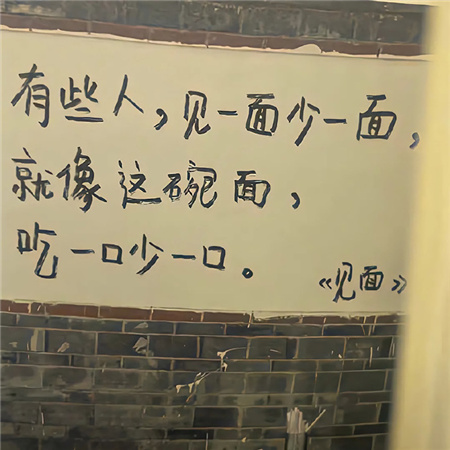 有些人，见一面少一面，
就像这碗面，
吃一口少一口。
《见面》